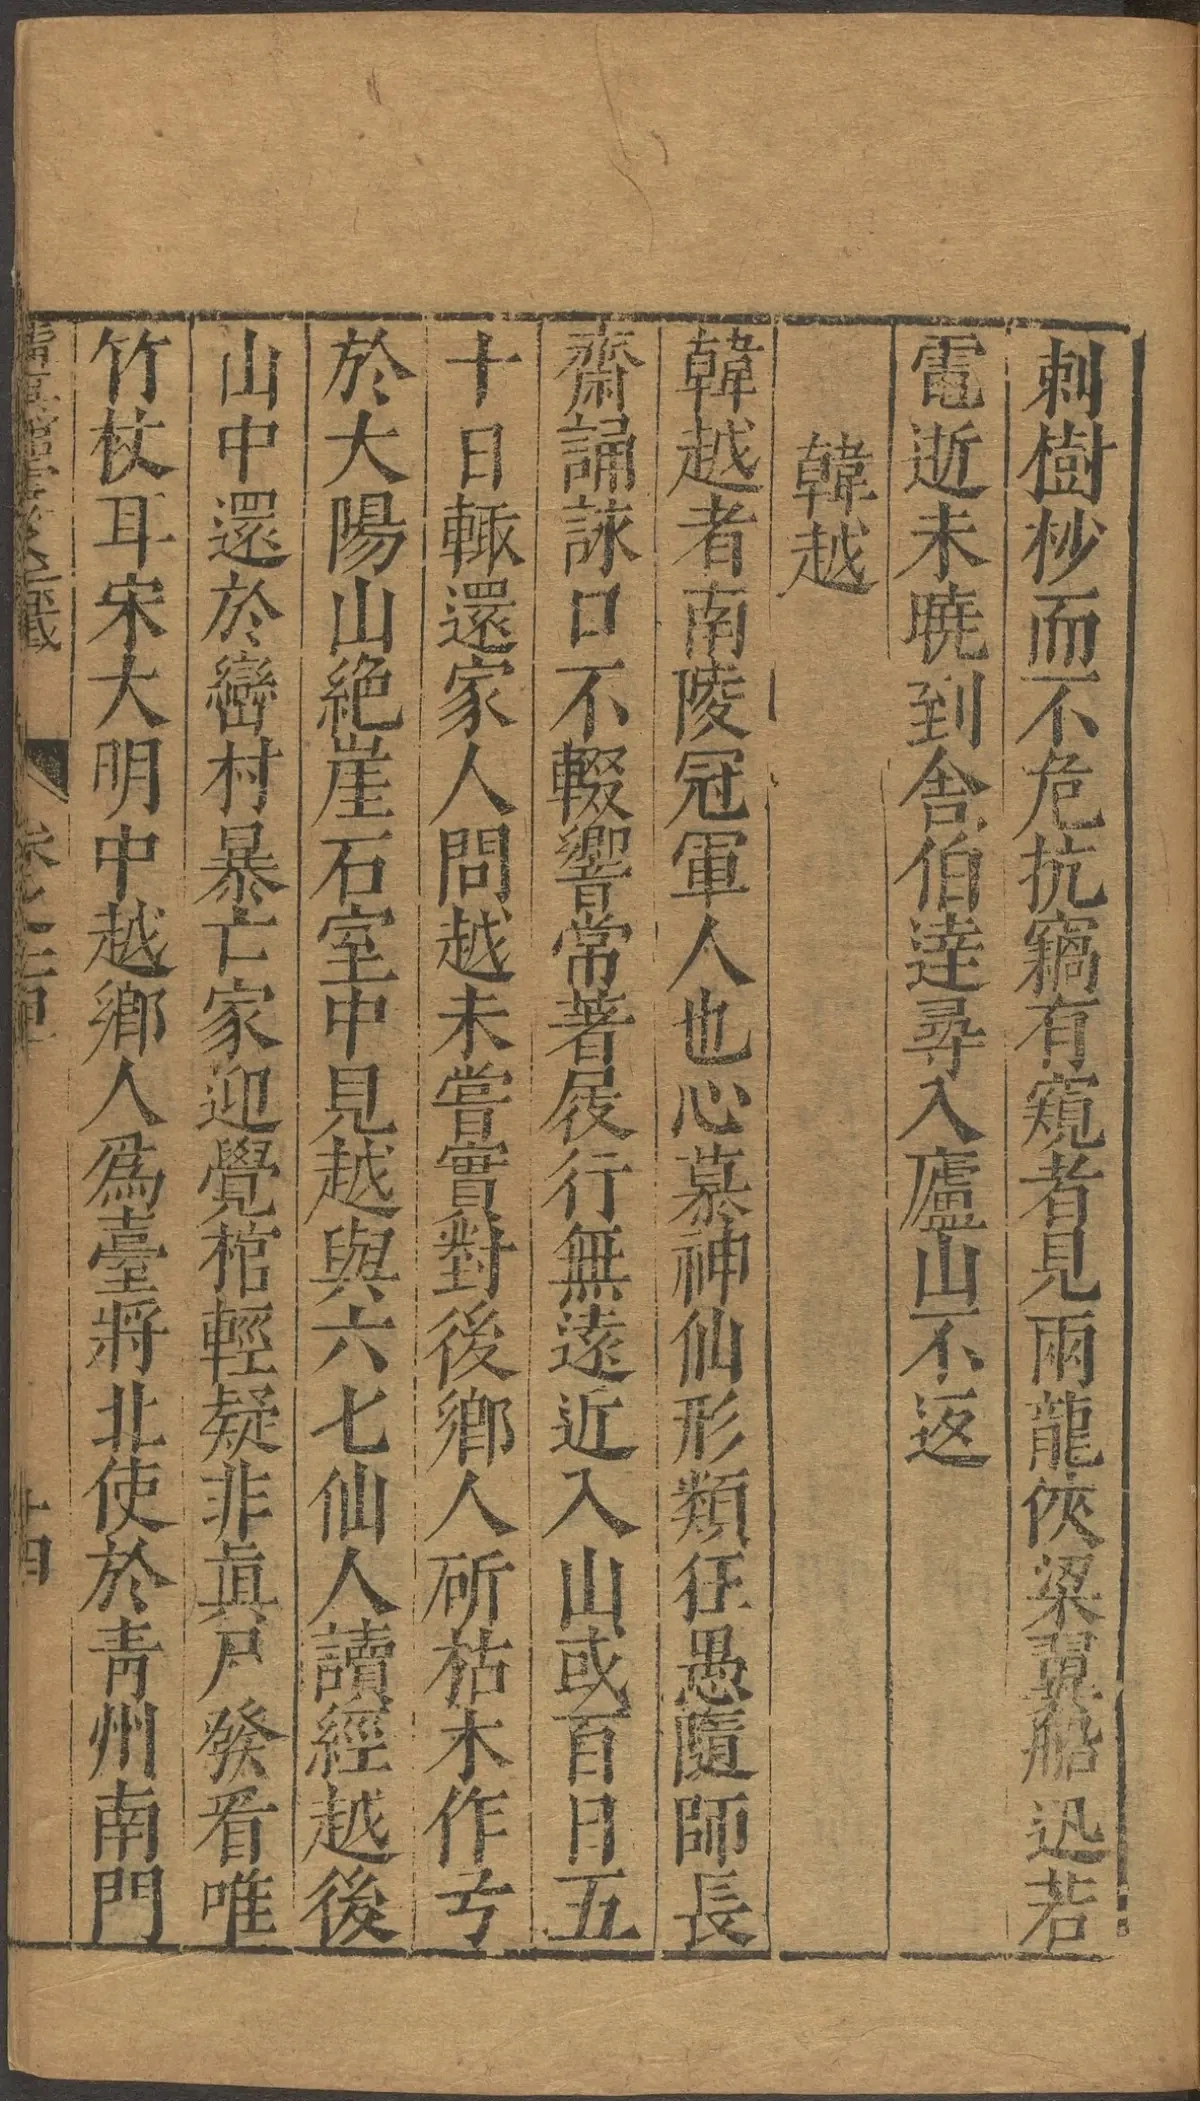 刺樹杪而不危抗竊有窺者見兩龍俠梁翼船迅若
電逝未曉到舍伯逹尋入廬山不返
韓越
韓越者南陵冠軍人也心慕神仙形類狂愚隨師長
齋誦詠口不輟響常著屐行無遠近入山或百日五
十日輙還家人問越未嘗實對後鄉人斫枯木作弓
於大陽山絶崖石室中見越與六七仙人讀經越後
山中還於巒村暴亡家迎覺棺輕疑非眞尸發看唯
竹杖耳宋大明中越鄉人爲臺將北使於青州南門